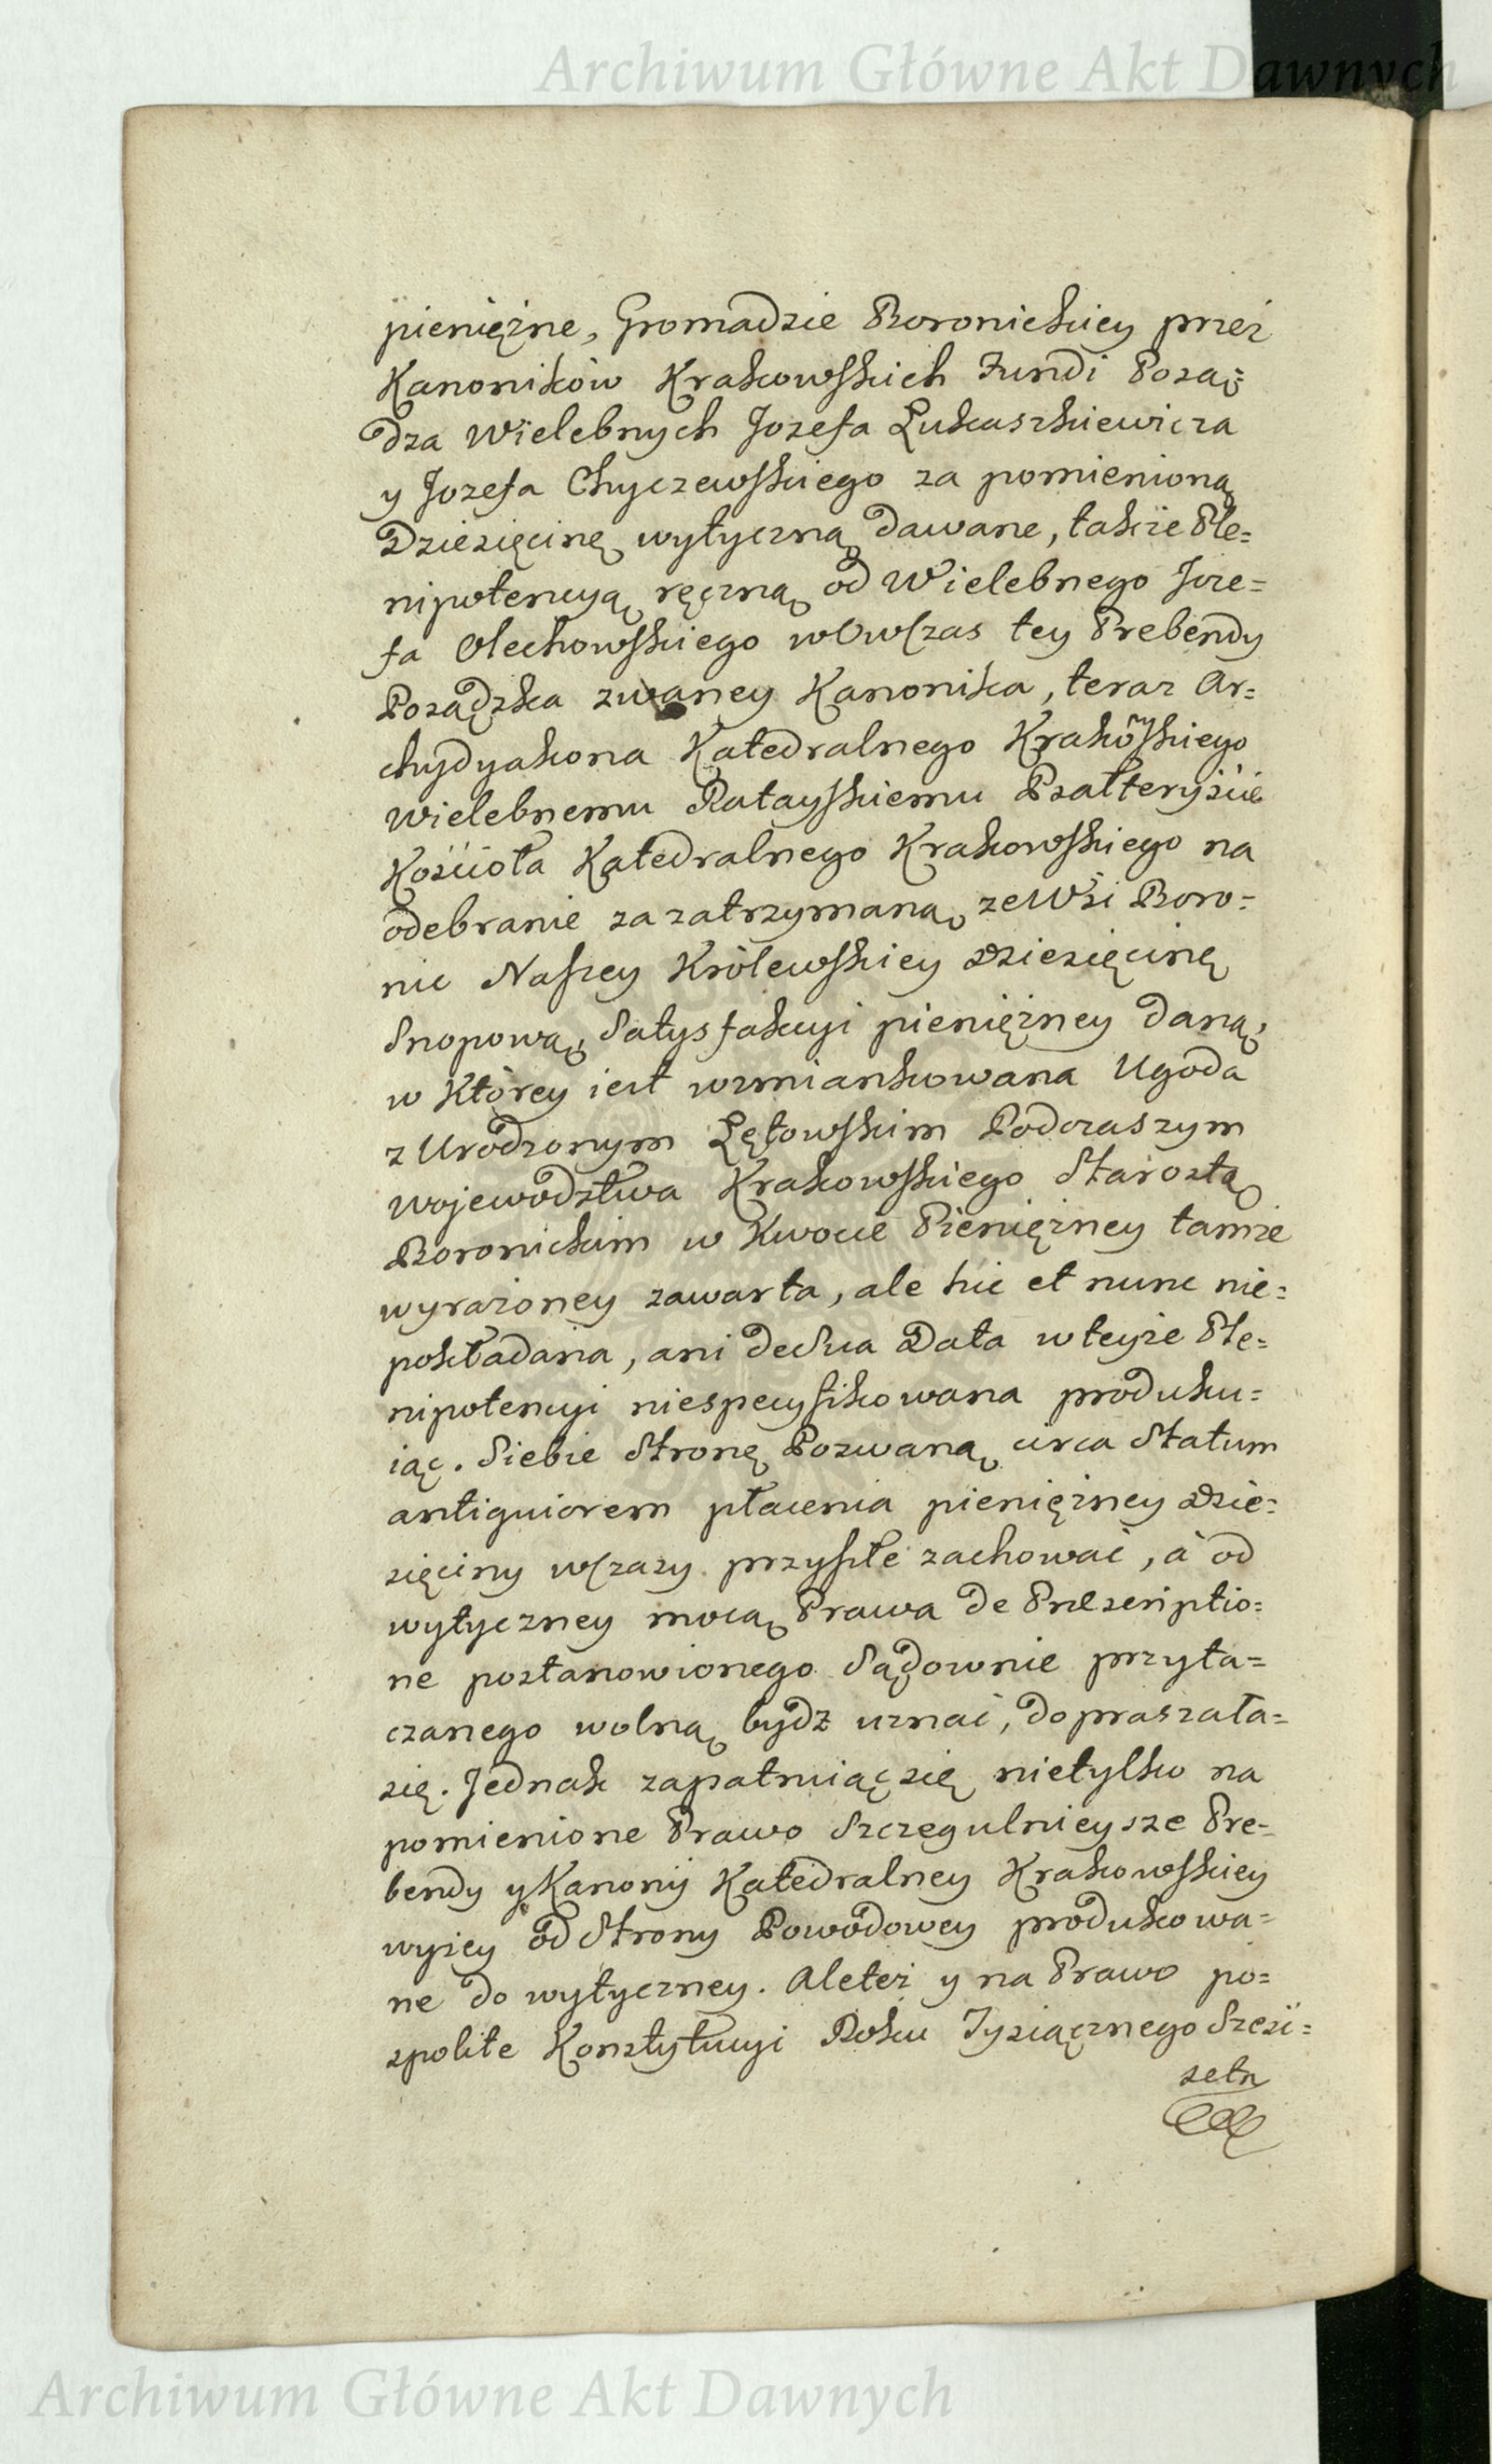 Archiwum Główne Akt Dawnych
pieniężne, Gromadzie Boronickiey przez
Kanoników Krakowskich Fundi Posą=
dza Wielebnych Jozefa Łukaszkiewicza
y Jozefa Chyczewskiego za pomienioną
Dziesięcinę wytyczną dawane, także Ple=
nipotencyą ręczną od Wielebnego Joze=
fa Olechowskiego wówczas tey Prebendy
Posądzka zwaney Kanonika, teraz Ar=
chydyakona Katedralnego Krakowskiego
Wielebnemu Ratayskiemu Psałteryście
Kościoła Katedralnego Krakowskiego na
odebranie za zatrzymaną ze Wsi Boro=
nic Naszey Królewskiey Dziesięcinę
Snopową, Satysfakcyi pieniężney daną,
w Którey iest wzmiankowana Ugoda
z Urodzonym Łętowskim Podczaszym
Wojewodztwa Krakowskiego Starostą
Boronickim w Kwocie Pieniężney tamże
wyrażoney zawarta, ale hic et nunc nie=
pokładana, ani de Sua Data w teyże Ple=
nipotencyi niespecyfikowana produku=
iąc. Siebie Stronę Pozwaną circa Statum
antiquiorem płacenia pieniężney Dzie=
sięciny w czasy przyszłe zachować, à od
wytyczney mocą Prawa de Præscriptio=
ne postanowionego Sądownie przyta=
czanego wolną bydz uznać, dopraszała=
się. Jednak zapatruiąc się nietylko na
pomienione Prawo Szczegulnieysze Pre=
bendy y Kanonij Katedralney Krakowskiey
wyżey od Strony Powodowey produkowa=
ne do wytyczney. Ale też y na Prawo po=
spolite Konstytucyi Roku Tysiącznego Sześć=
setn
Archiwum Główne Akt Dawnych